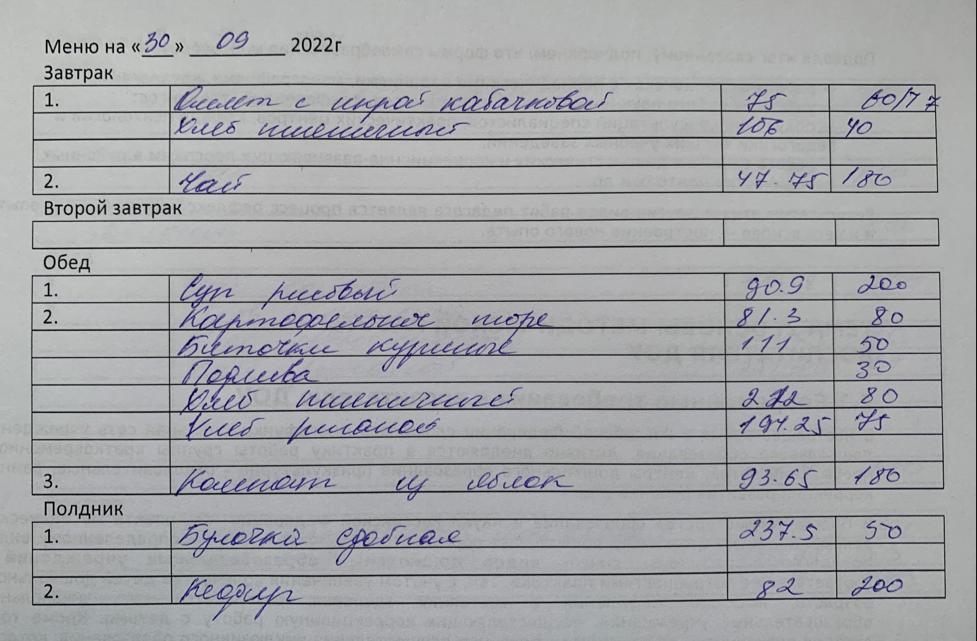 Меню на «30» 09 2022г
Завтрак
1. Омлет с икрой кабачковой 75 60/17
Хлеб пшеничный 106 40
2. Чай 47.75 180
Второй завтрак
Обед
1. Суп рисовый 90.9 200
2. Картофельное пюре 81.3 80
Биточки куриные 111 50
Подлива 30
Хлеб пшеничный 212 80
Хлеб ржаной 191.25 75
3. Компот из яблок 93.65 180
Полдник
1. Булочка сдобная 237.5 50
2. Кефир 82 200